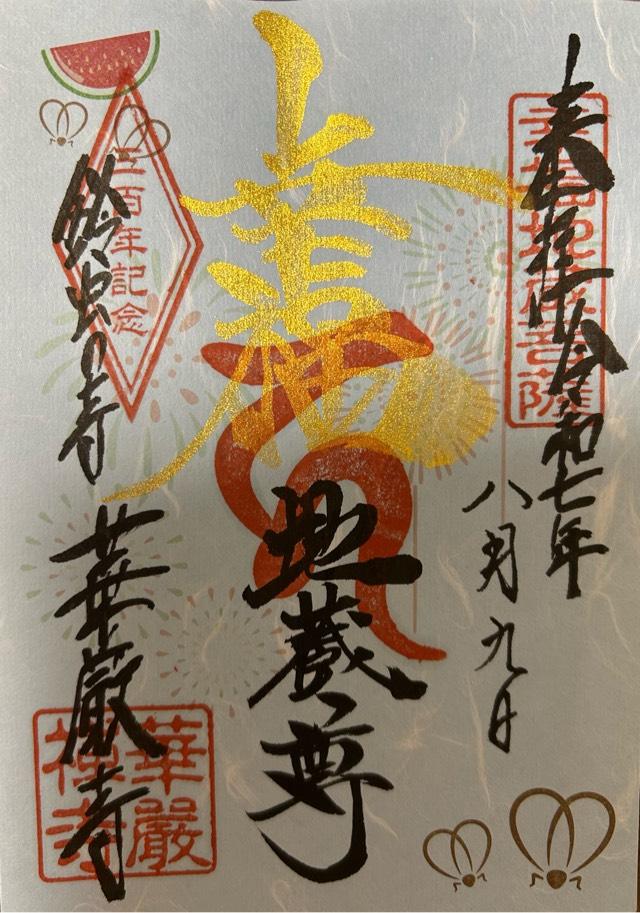 奉拝 令和七年
八月九日
幸福地蔵菩薩
幸福
地蔵尊
三百年記念
鈴虫の寺 華厳寺
華嚴禅寺